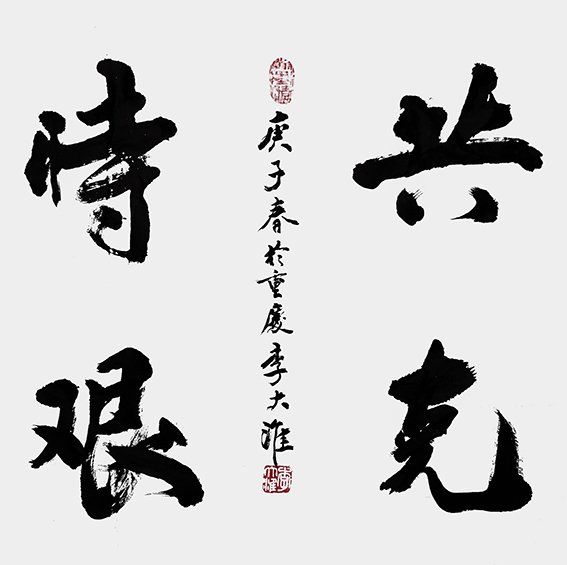 共克
時艰
庚子春於重慶李大淮